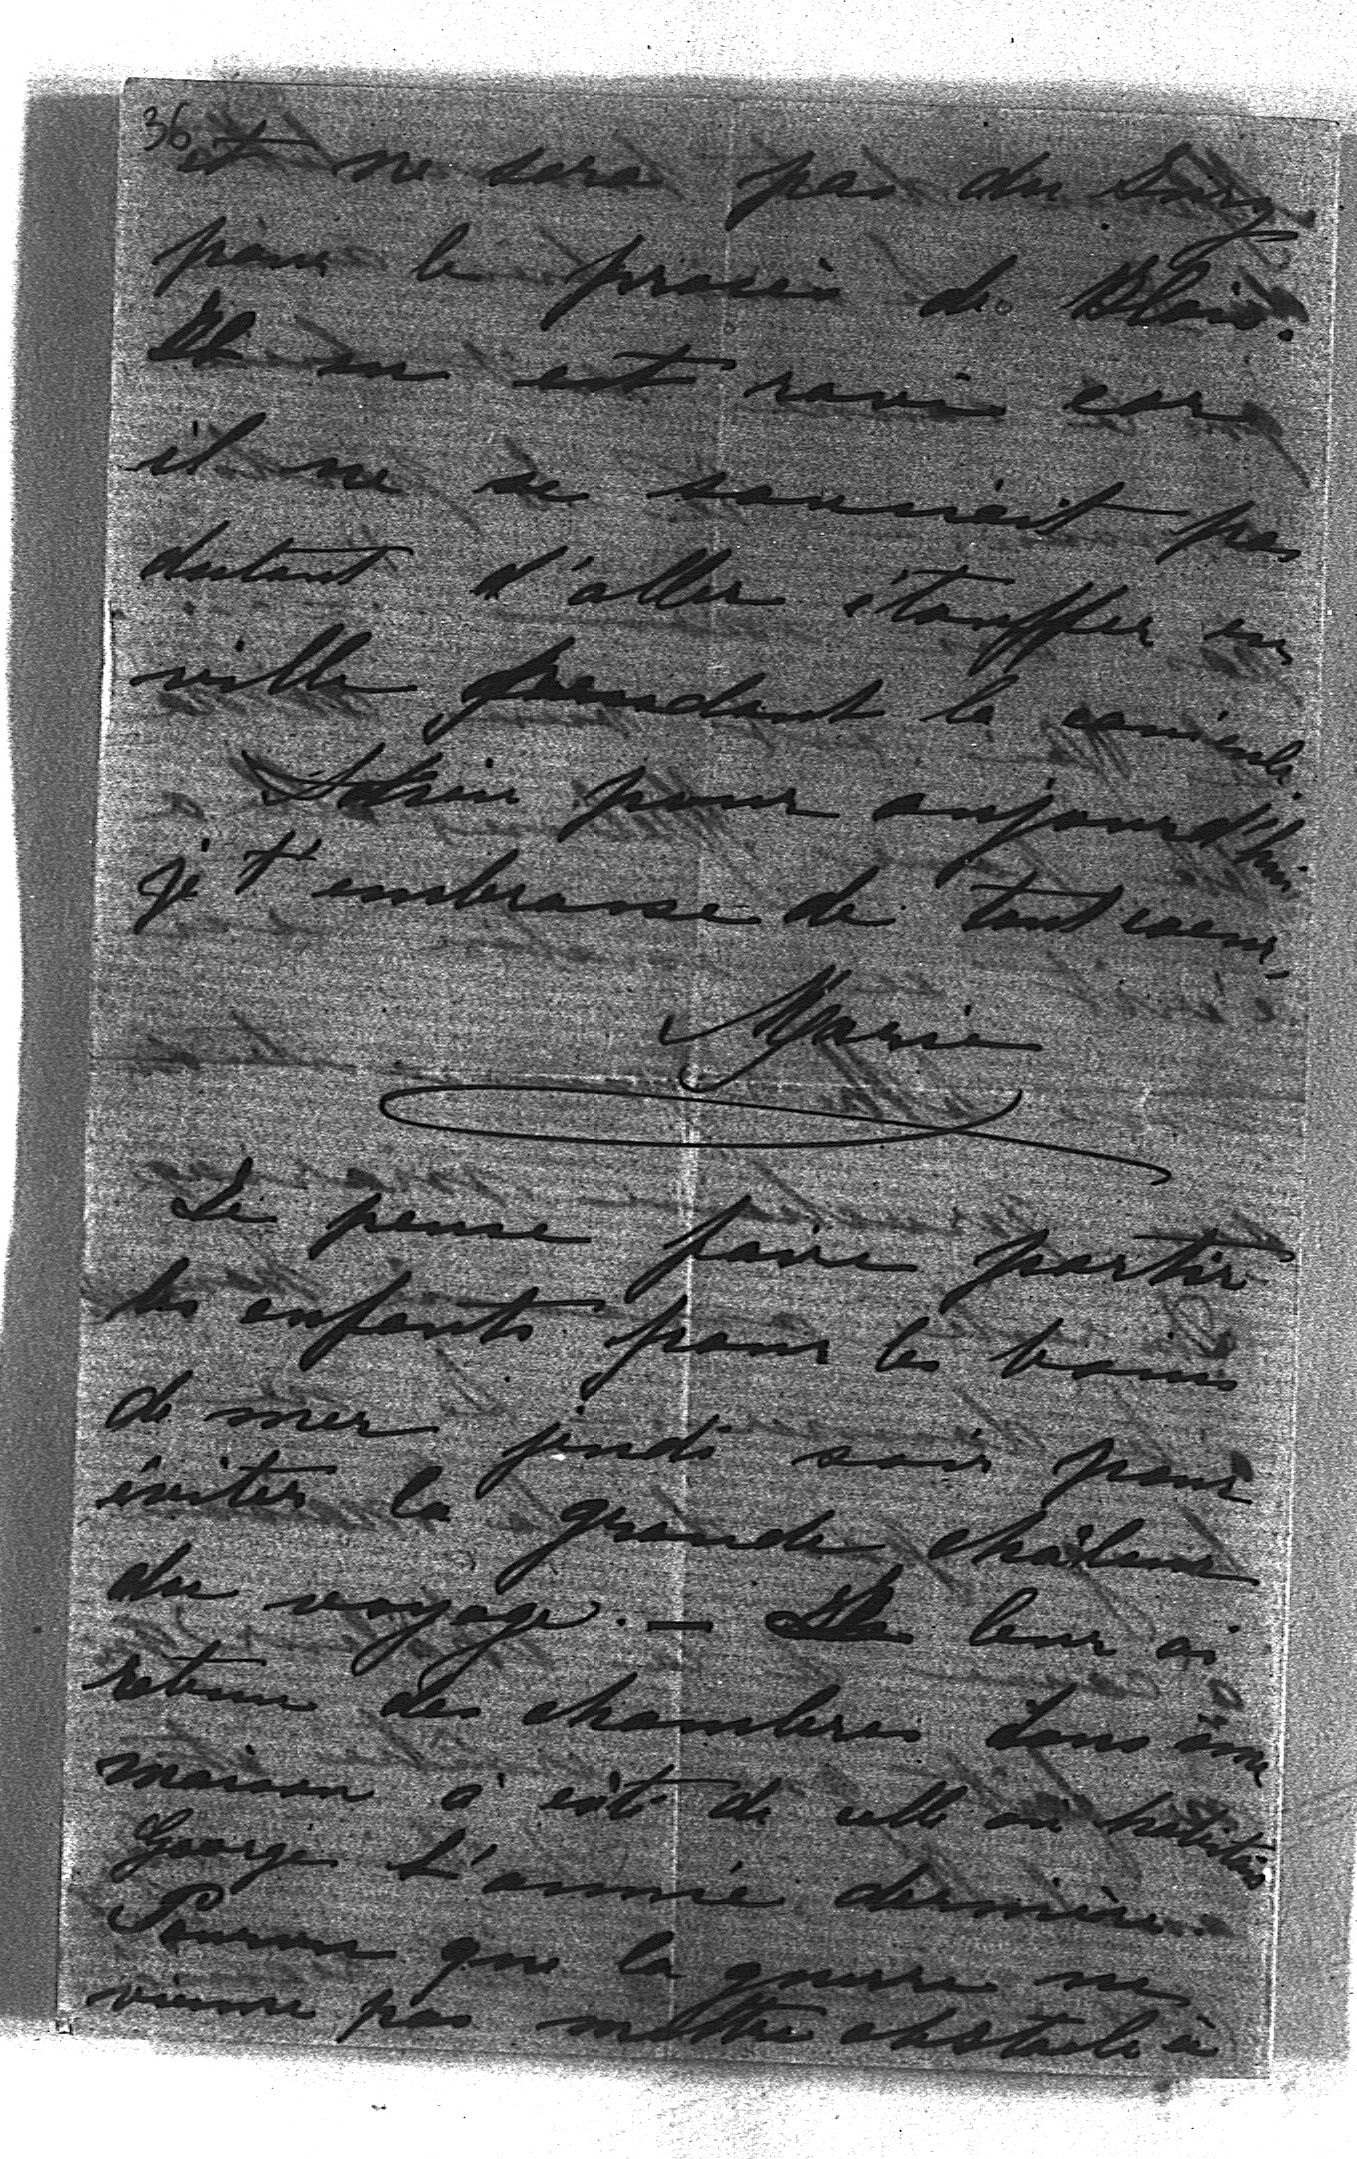 36
et ne sera pas du Jury
pour le procès de Blois.
Il en est ravi car
il ne se souciait pas
dutant d'aller étouffer en
ville pendant la canicule.
Adieu pour aujourd'hui
je t'embrasse de tout coeur,
Marie
Je pense faire partir
les enfants pour les bains
de mer jeudi soir pour
éviter la grande chaleur
du voyage. — Je leur ai
retenu des chambres dans une
maison à côté de celle où habitait
George l'année dernière.
Pourvu que la guerre ne
vienne pas mettre obstacle à